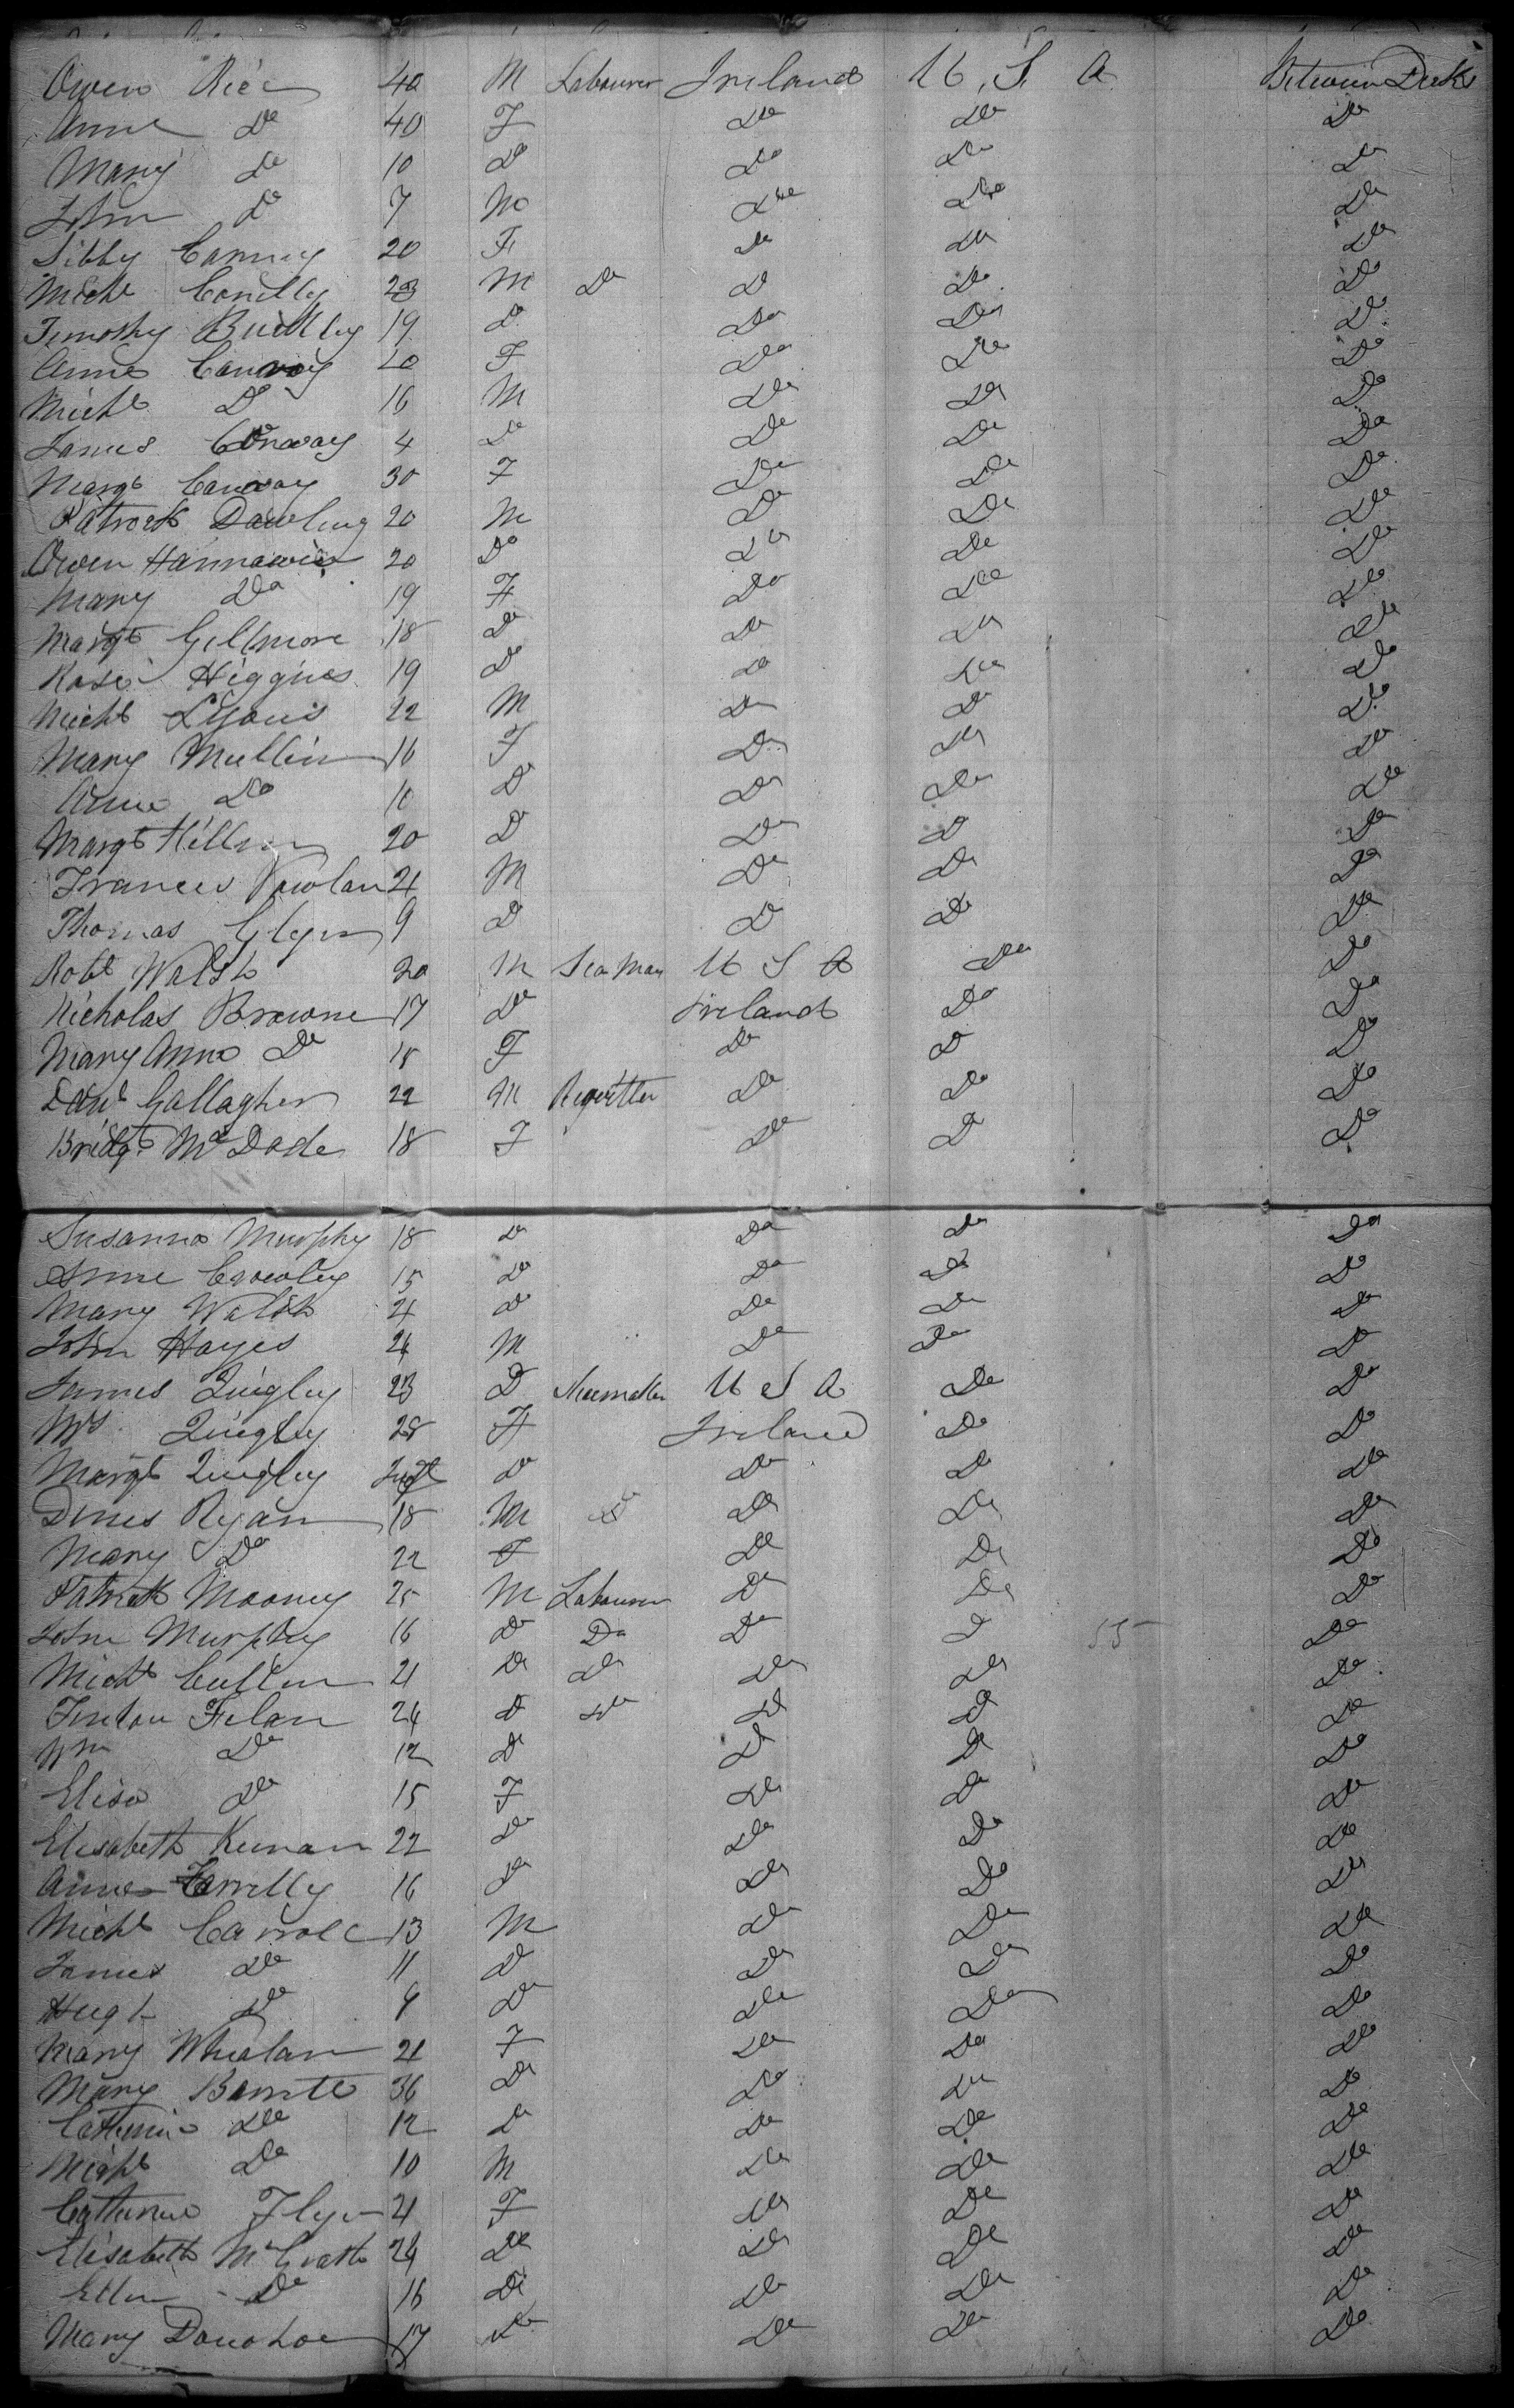 Owen Rice 40 M Labourer Ireland U. S. A Between Decks
Anne Do 40 F Do Do Do
Mary Do 10 Do Do Do Do
John Do 7 M Do Do Do
Sibby 20 F Do Do Do
Michl M Do Do Do Do
Timothy 19 Do Do Do Do
Anne 20 F Do Do Do
Michl Do 16 M Do Do Do
James Conway 4 Do Do Do Do
Margt Conway 30 F Do Do Do
Patrick Dowling 20 M Do Do Do
Owen 20 Do Do Do Do
Mary Do 19 F Do Do Do
Margt Gillmore 18 Do Do Do Do
Rose Higgins 19 Do Do Do Do
Michl Lyons 22 M Do Do Do
Mary Mullin 16 F Do Do Do
Anne Do Do Do Do Do
Margt 20 Do Do Do Do
Francis 21 M Do Do Do
Thomas Glyn 9 Do Do Do Do
Robt Walsh 20 M Sea Man U S A Do Do
Nicholas Browne 17 Do Ireland Do Do
Mary Anne Do 18 F Do Do Do
Danl Gallagher 22 M Do Do Do
Bridgt McDade 18 F Do Do Do
Susanna Murphy 18 Do Do Do Do
Anne Crowley 15 Do Do Do Do
Mary Walsh 21 Do Do Do Do
John Hayes 24 M Do Do Do
James Quigley 23 Do Shoemaker U S A Do Do
Mrs Quigley 28 F Ireland Do Do
Margt Quigley Inft Do Do Do Do
Dines Ryan 18 M Do Do Do Do
Mary Do 22 F Do Do Do
Patrick Mooney 25 M Labourer Do Do Do
John Murphy 16 Do Do Do Do 55 Do
Michl Cullen 21 Do Do Do Do Do
Fintan Felan 24 Do Do Do Do Do
Wm Do 12 Do Do Do Do
Elisa Do 15 F Do Do Do
Elisabeth Keenan 22 Do Do Do Do
Anne Farrelly 16 Do Do Do Do
Michl Carroll 13 M Do Do Do
James Do 11 Do Do Do Do
Hugh Do 9 Do Do Do Do
Mary Whealan 21 F Do Do Do
Mary 36 Do Do Do Do
Catherine Do 12 Do Do Do Do
Michl Do 10 M Do Do Do
Catherine Flyn 21 F Do Do Do
Elisabeth McGrath 24 Do Do Do Do
Ellen Do 16 Do Do Do Do
Mary Donohoe 17 Do Do Do Do